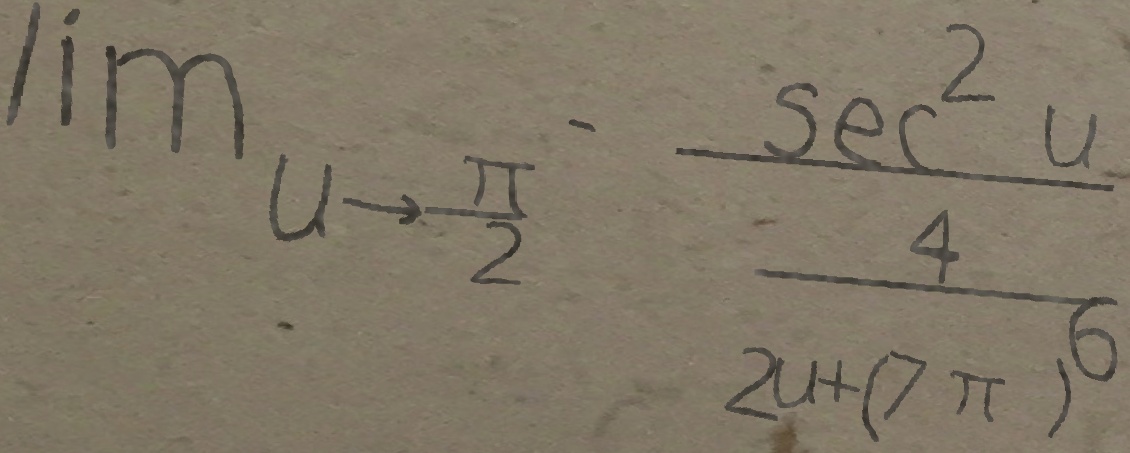 \lim_{u \to \frac{\pi}{2}^{-}} \frac{\sec^{2} u}{\frac{4}{2u+(7\pi)^{6}}}